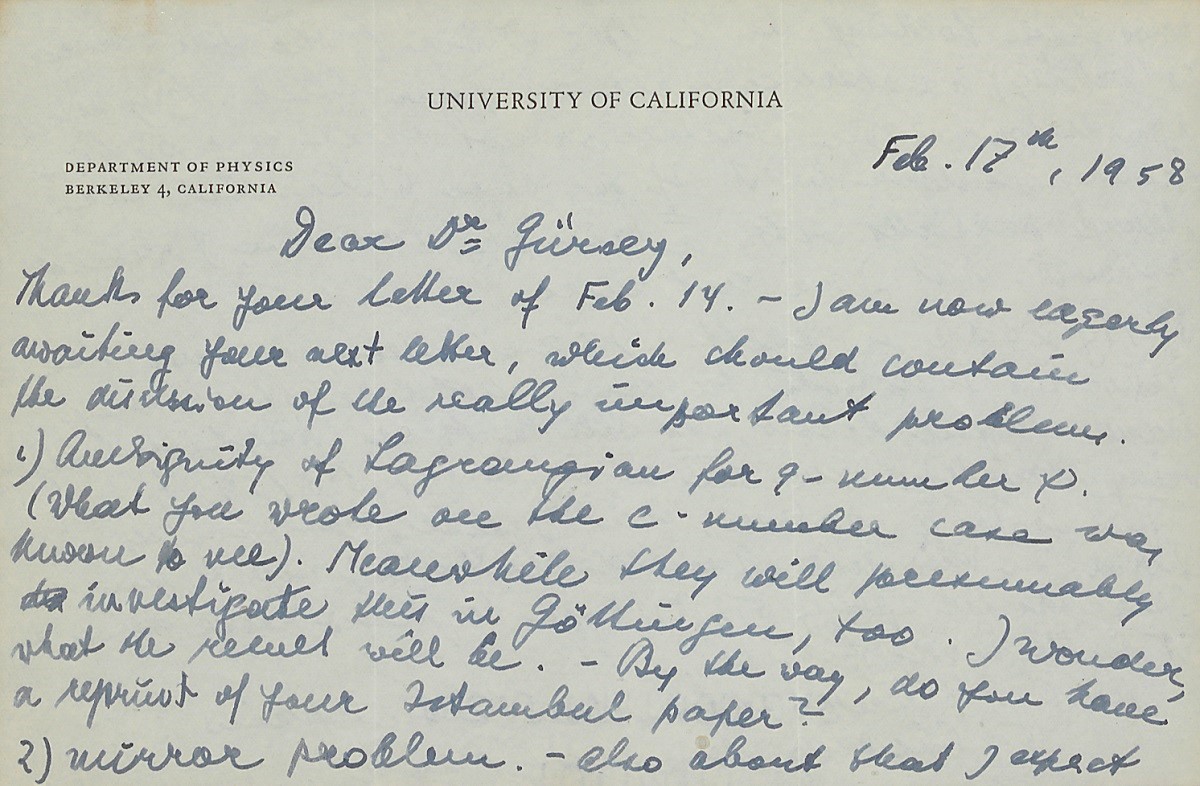 UNIVERSITY OF CALIFORNIA
Feb. 17th, 1958
DEPARTMENT OF PHYSICS
BERKELEY 4, CALIFORNIA
Dear Dr Gürsey,
Thanks for your letter of Feb. 14. – I am now eagerly
awaiting your next letter, which should contain
the discussion of the really important problems.
1.) Ambiguity of Lagrangian for q-number
(What you wrote on the c-number case was
known to me). Meanwhile they will presumably
investigate this in Göttingen, too. I wonder,
what the result will be. – By the way, do you have
a reprint of your Istambul paper?
2) mirror problem. – Also about that I expect